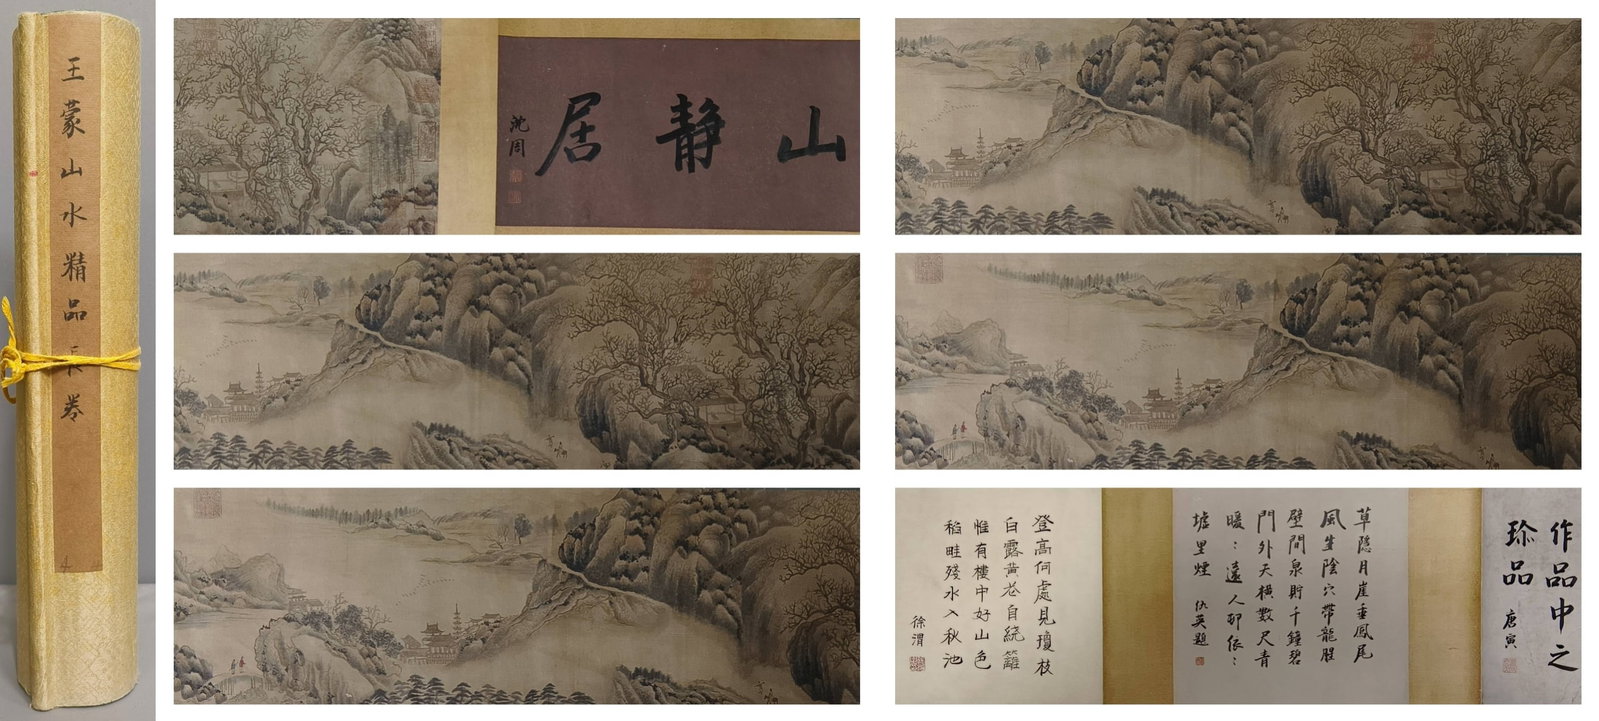 王蒙山水精品長卷
山静居
沈周
作品中之
珎品
唐寅
草隱月崖垂鳳尾
風生陰穴帶龍腥
壁間泉貯千鐘碧
門外天橫數尺青
暖：遠人邨依：
墟里煙
仇英題
登高何處見瓊枝
白露黃花自繞籬
惟有樓中好山色
稻畦殘水入秋池
徐渭